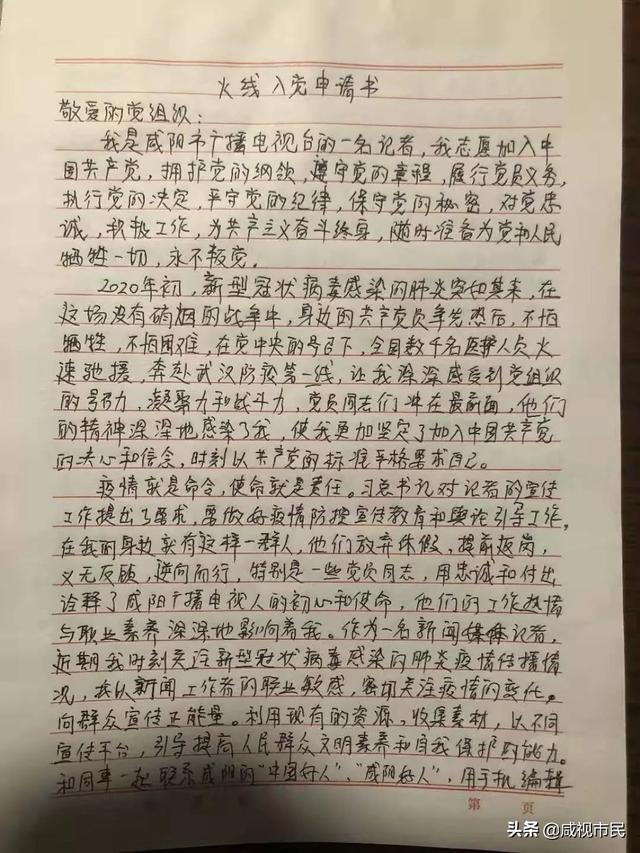 火线入党申请书
敬爱的党组织：
我是咸阳市广播电视台的一名记者，我志愿加入中
国共产党，拥护党的纲领，遵守党的章程，履行党员义务，
执行党的决定，严守党的纪律，保守党的秘密，对党忠
诚，积极工作，为共产主义奋斗终身，随时准备为党和人民
牺牲一切，永不叛党。
2020年初，新型冠状病毒感染的肺炎突如其来，在
这场没有硝烟的战争中，身边的共产党员争先恐后，不怕
牺牲，不怕困难，在党中央的号召下，全国数千名医护人员火
速驰援，奔赴武汉防疫第一线，让我深深感受到党组织
的号召力，凝聚力和战斗力，党员同志们冲在最前面，他们
的精神深深地感染了我，使我更加坚定了加入中国共产党
的决心和信念，时刻以共产党的标准严格要求自己。
疫情就是命令，使命就是责任。习总书记对记者的宣传
工作提出了要求，要做好疫情防控宣传教育和舆论引导工作，
在我的身边就有这样一群人，他们放弃休假，提前返岗，
义无反顾，逆向而行，特别是一些党员同志，用忠诚和付出
诠释了咸阳广播电视人的初心和使命，他们的工作热情
与职业素养深深地影响着我。作为一名新闻媒体记者，
近期我时刻关注新型冠状病毒感染的肺炎疫情传播情
况，我以新闻工作者的职业敏感，密切关注疫情的变化，
向群众宣传正能量。利用现有的资源，收集素材，以不同
宣传平台，引导提高人民群众文明素养和自我保护的能力。
和同事一起联系咸阳的“中国好人”、“咸阳好人”，用手机编辑
第 页
头条 @咸视市民